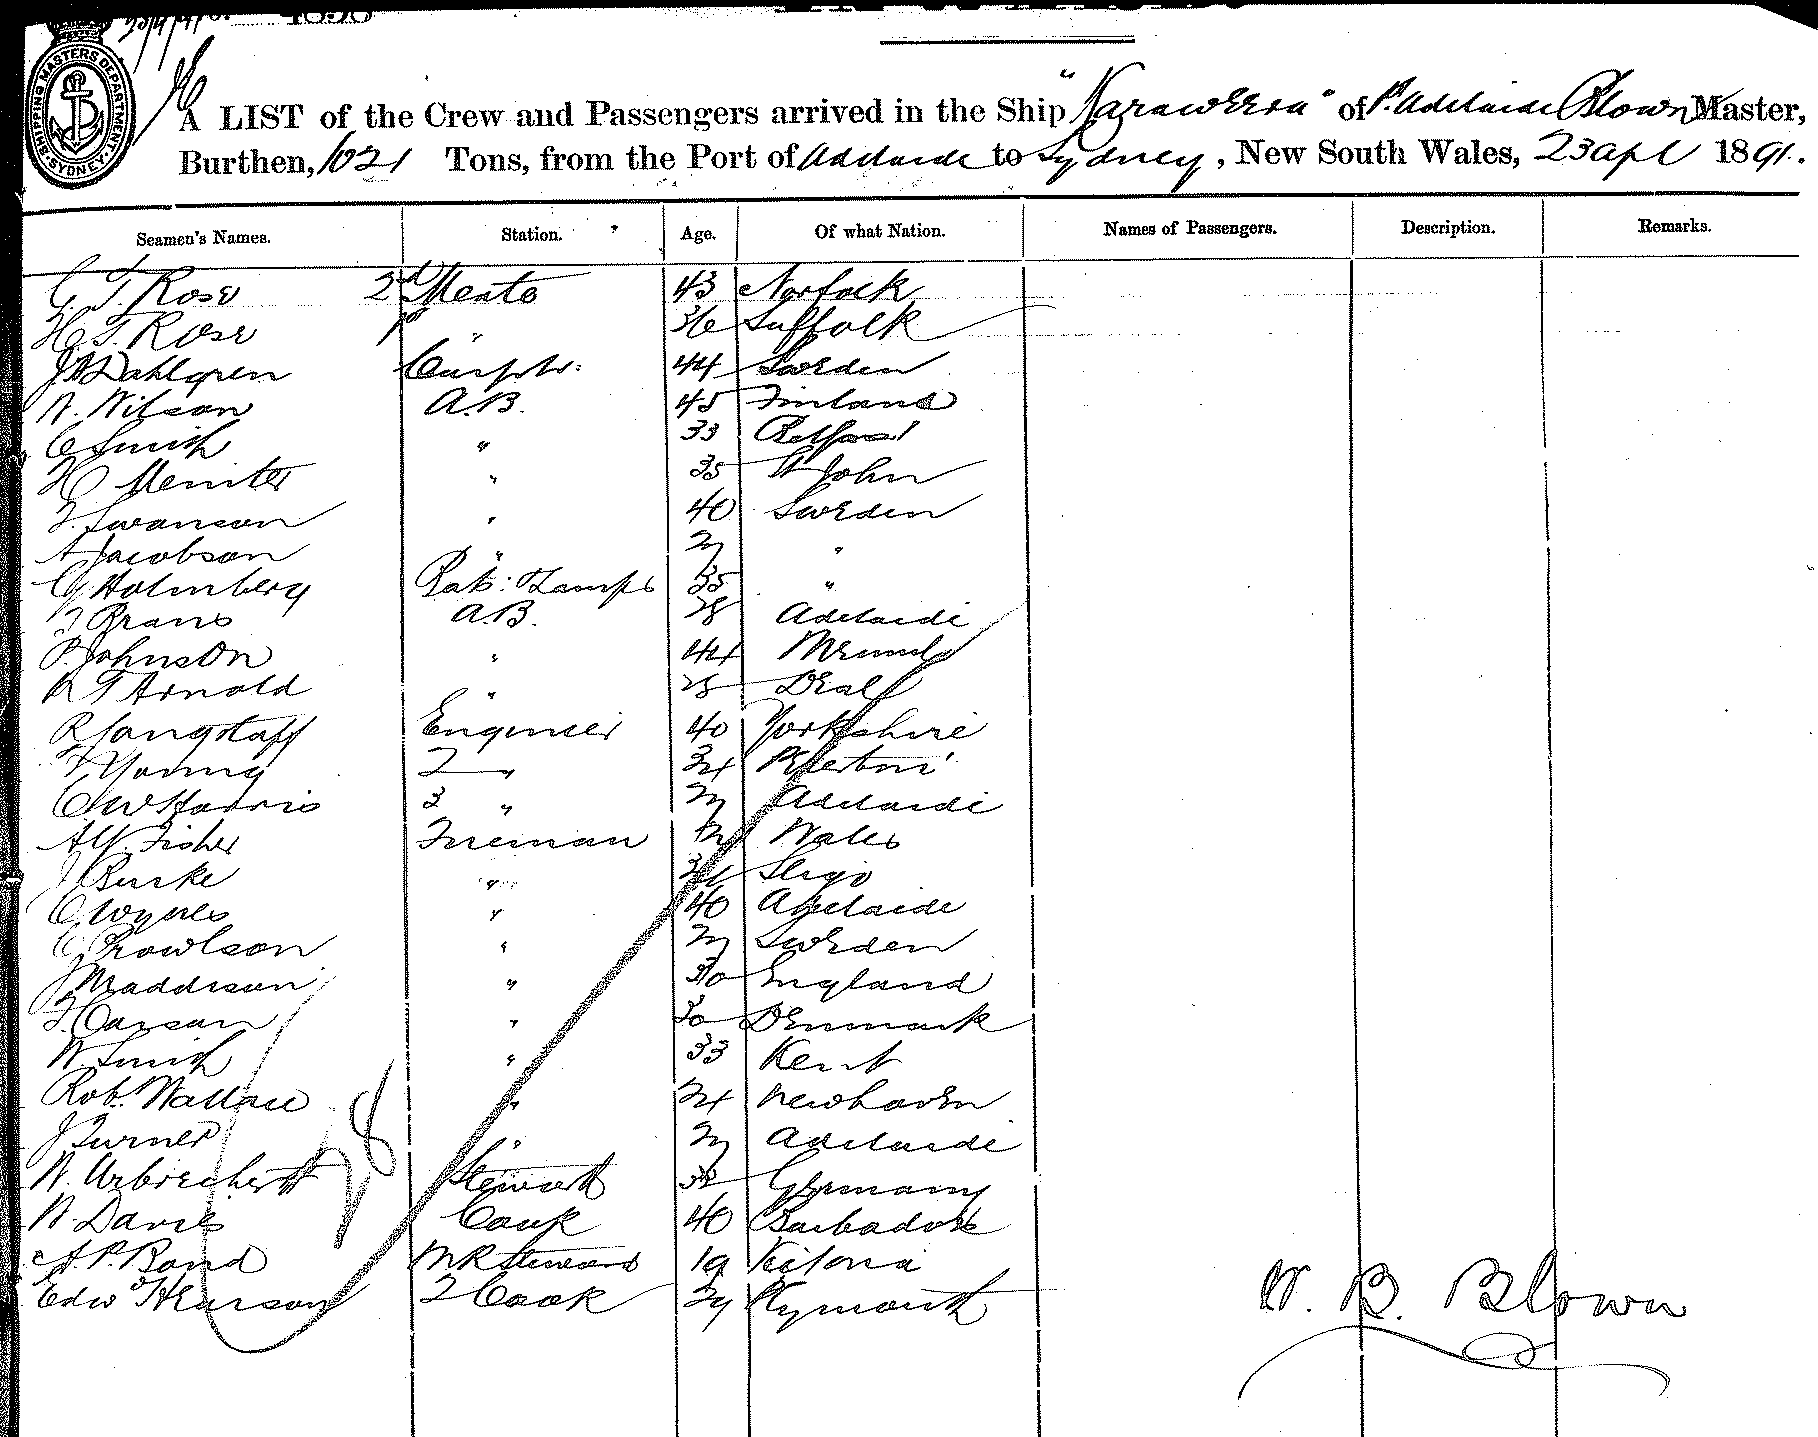 SHIPPING MASTERS DEPARTMENT. SYDNEY.
A LIST of the Crew and Passengers arrived in the Ship "Karaweera" of Pt. Adelaide Blown Master,
Burthen, 1021 Tons, from the Port of Adelaide to Sydney, New South Wales, 23 Apl 1891.
Seamen's Names. Station. Age. Of what Nation. Names of Passengers. Description. Remarks.
G T. Rose 2d Mate 43 Norfolk
H. T. Rose 1st " 36 Suffolk
Dahlgren Carptr. 44 Sweden
N. Nilson A.B. 45 Finland
C Smith " 33 Belfast
H " 35 St John
F. Swanson " 40 Sweden
A Jacobson " 27 "
G Holmberg Lamps 35 "
A.B. 28 Adelaide
P. Johnson " 44
R T Arnold " 28 Deal
R Langstaff Engineer 40 Yorkshire
F Young 2 " 34
C W Harris 3 " 27 Adelaide
A W. Fisher Fireman Wales
J Burke " Sligo
C Wynes " 40 Adelaide
C " 27 Sweden
J Maddison " 30 England
F. Carson " 30 Denmark
W. Smith " 33 Kent
Rob. Wallace " 24 Newhaven
J Turner " 27 Adelaide
W. Steward 32 Germany
W Davis Cook 40 Barbados
A. P. Bond M R Steward 19 Victoria
Edwd Hearson 2 Cook Plymouth
28
W. B. Blown